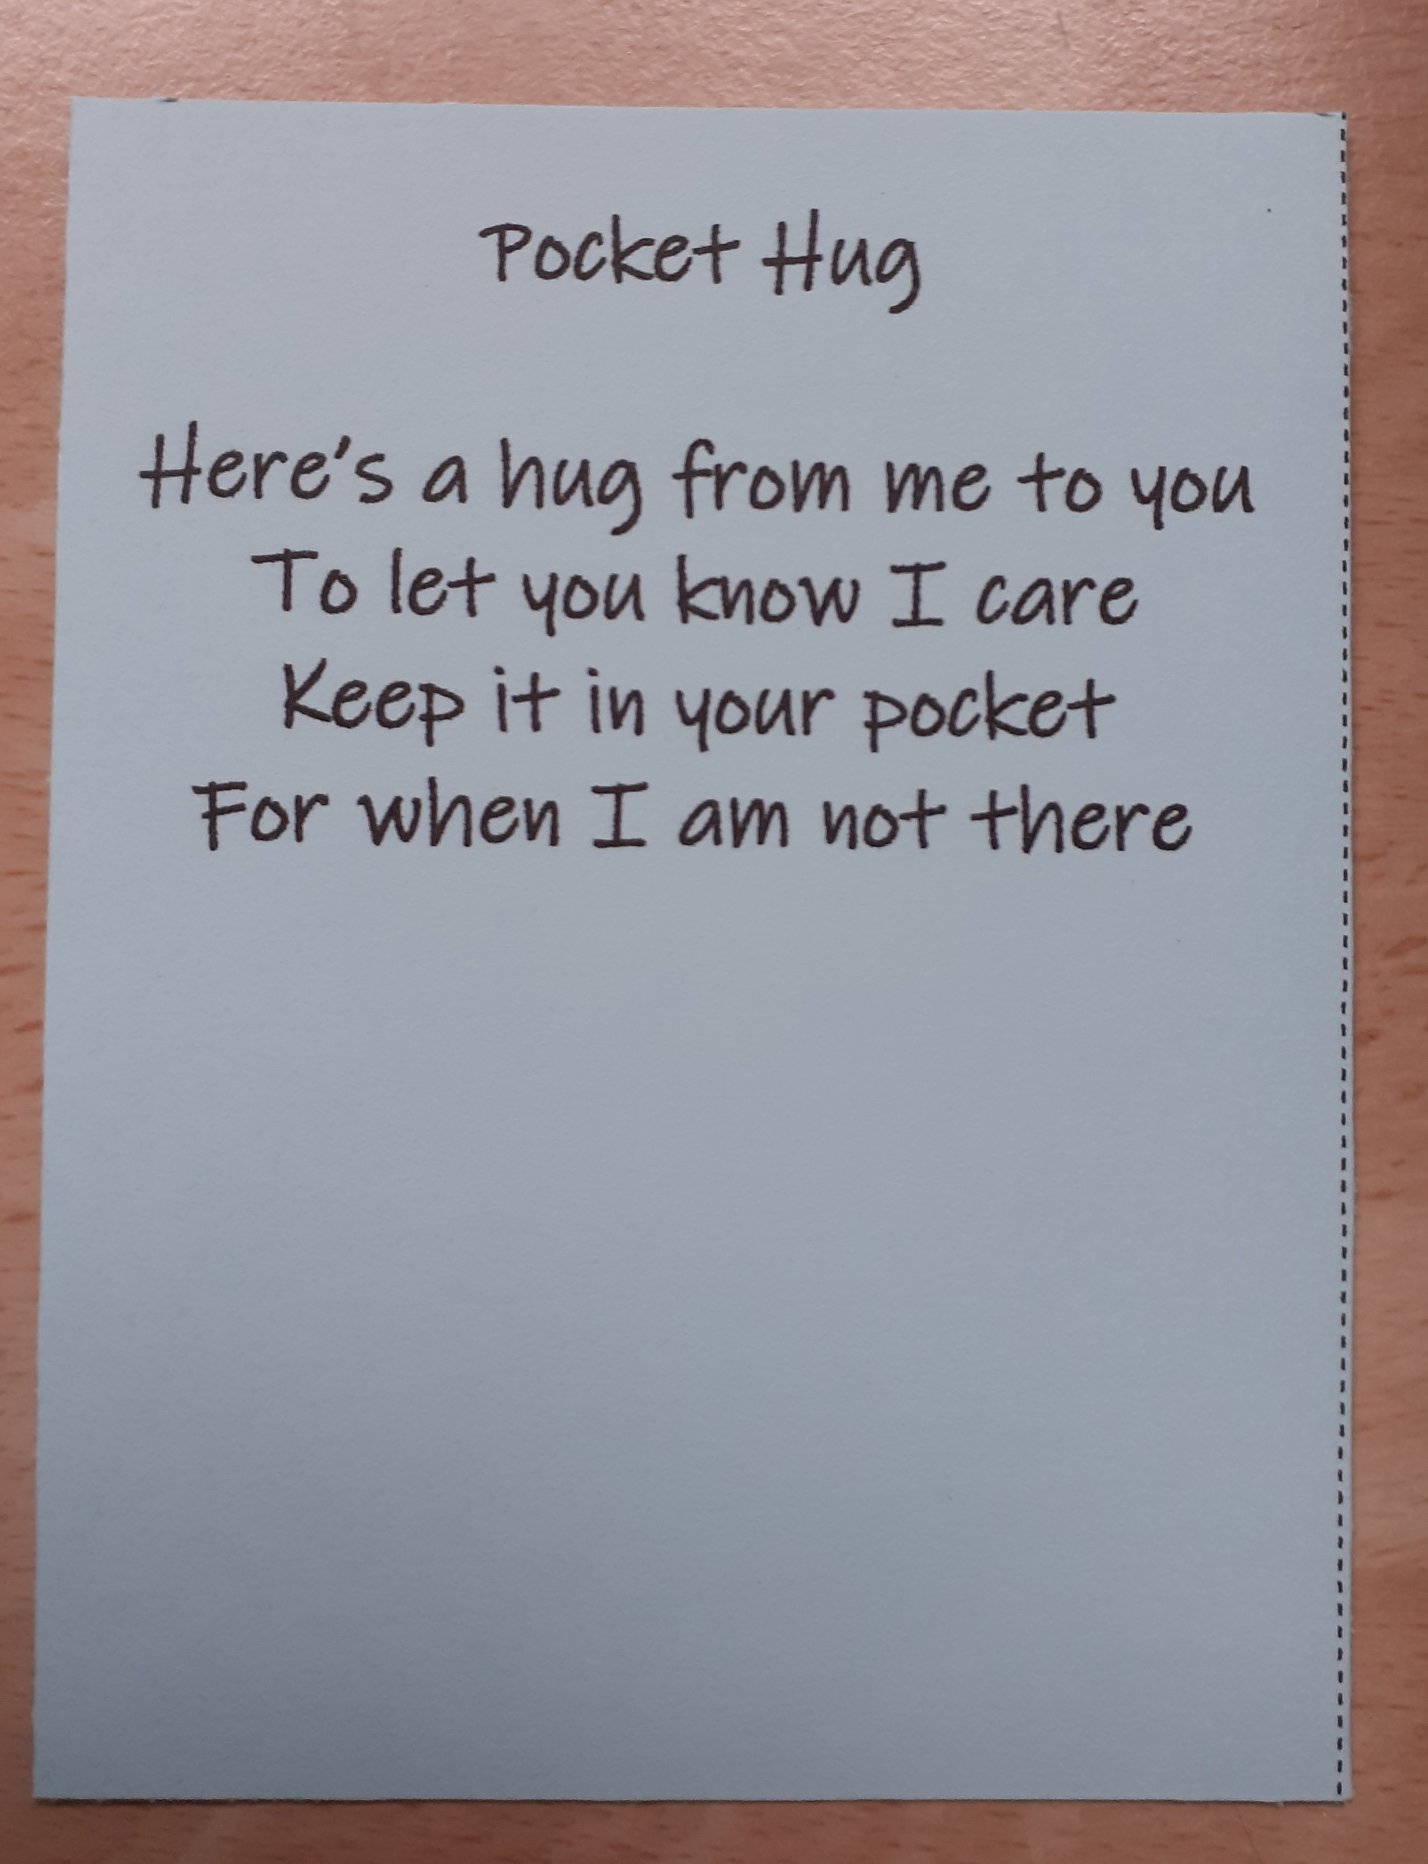 Pocket Hug
Here's a hug from me to you
To let you know I care
Keep it in your pocket
For when I am not there